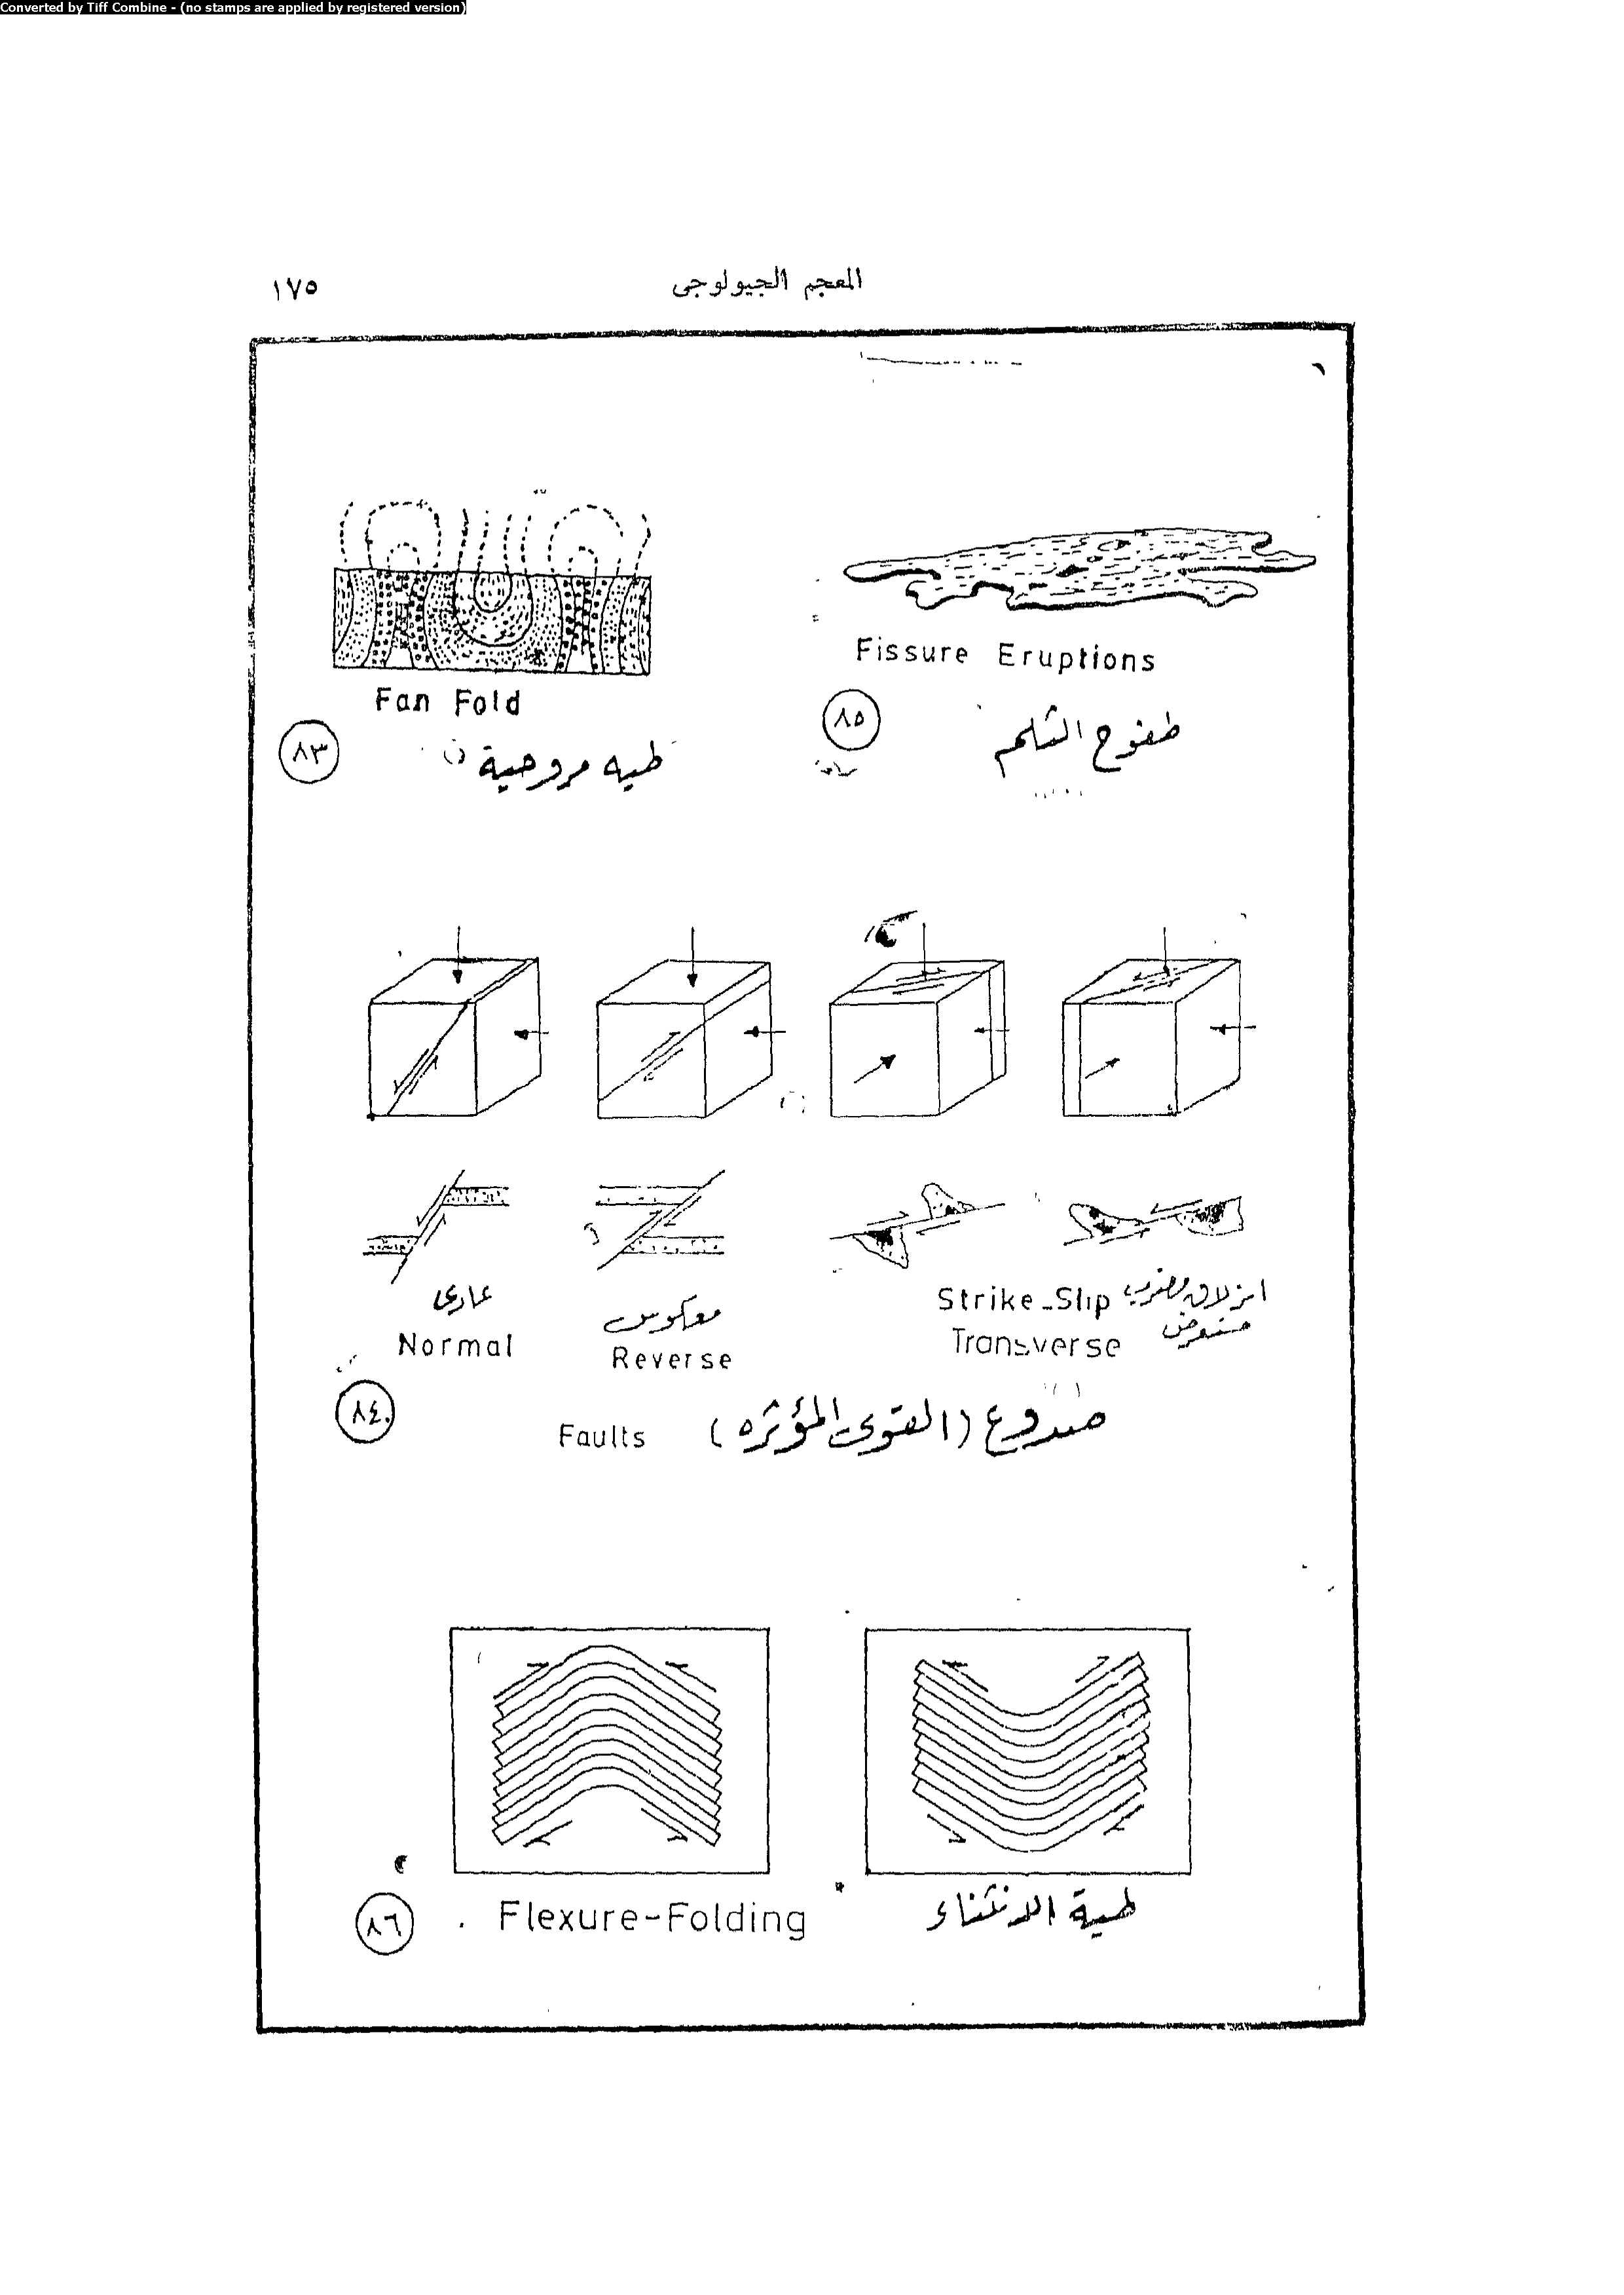 Converted by Tiff Combine - (no stamps are applied by registered version)
المعجم الجيولوجى
١٧٥
Fan Fold
٨٣
طيه مروحية
Fissure Eruptions
٨٥
طفوح الثلم
عادى
Normal
معكوس
Reverse
Strike-Slip انزلاق مضرب
Transverse مستعرض
٨٤
Faults صدوع (القوى المؤثره)
٨٦
Flexure-Folding طية الانثناء